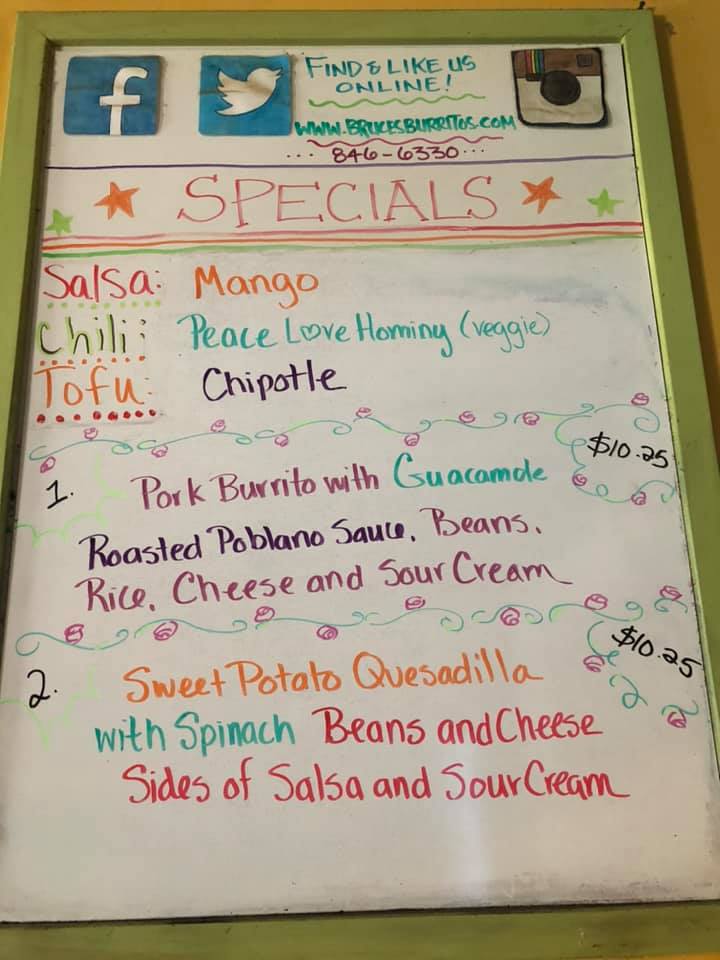 FIND & LIKE US
ONLINE!
WWW.BRUCESBURRITOS.COM
... 846-6330...
SPECIALS
Salsa: Mango
Chili: Peace Love Hominy (veggie)
Tofu: Chipotle
$10.25
1. Pork Burrito with Guacamole
Roasted Poblano Sauce, Beans,
Rice, Cheese and Sour Cream
$10.25
2. Sweet Potato Quesadilla
with Spinach Beans and Cheese
Sides of Salsa and Sour Cream